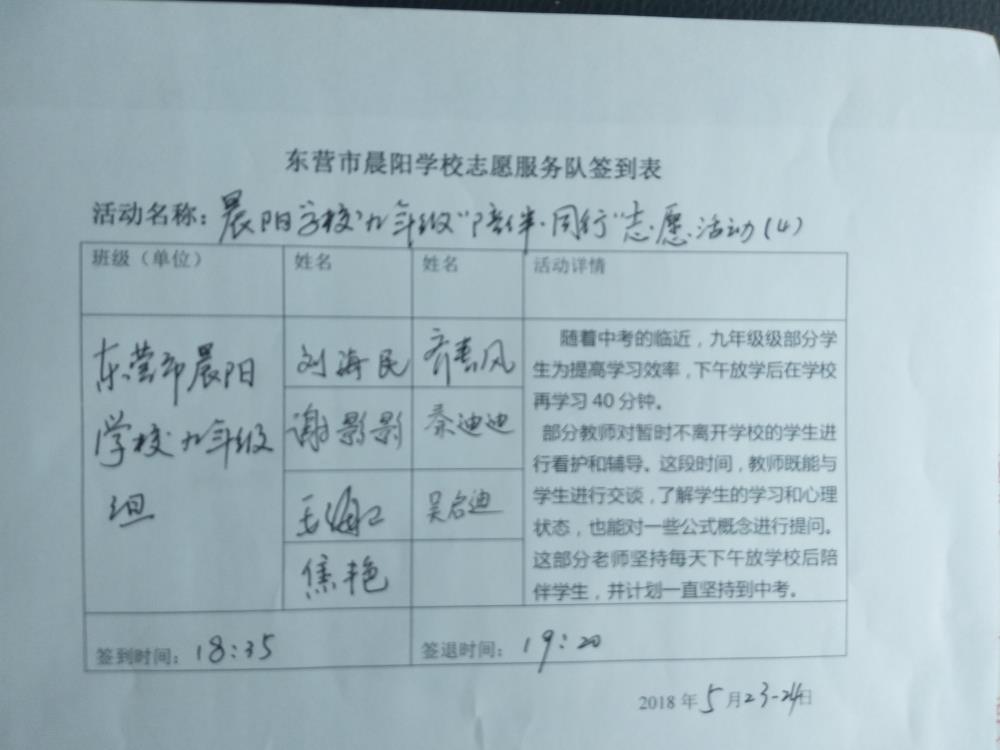 东营市晨阳学校志愿服务队签到表
活动名称：晨阳学校九年级“陪伴·同行”志愿活动(4)
班级（单位） 姓名 姓名 活动详情
东营市晨阳
学校九年级
组
刘海民 齐春风
谢影影 秦迪迪
王海江 吴启迪
焦艳
随着中考的临近，九年级级部分学
生为提高学习效率，下午放学后在学校
再学习 40 分钟。
部分教师对暂时不离开学校的学生进
行看护和辅导。这段时间，教师既能与
学生进行交谈，了解学生的学习和心理
状态，也能对一些公式概念进行提问。
这部分老师坚持每天下午放学校后陪
伴学生，并计划一直坚持到中考。
签到时间：18:35 签退时间：19:20
2018 年 5 月 23-24 日